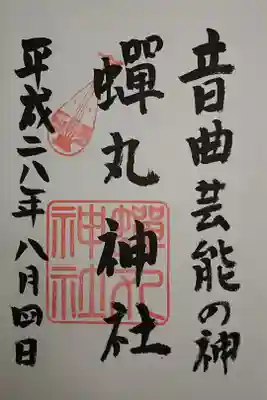 音曲芸能の神
蟬丸神社
平成二八年八月四日
蟬丸神社